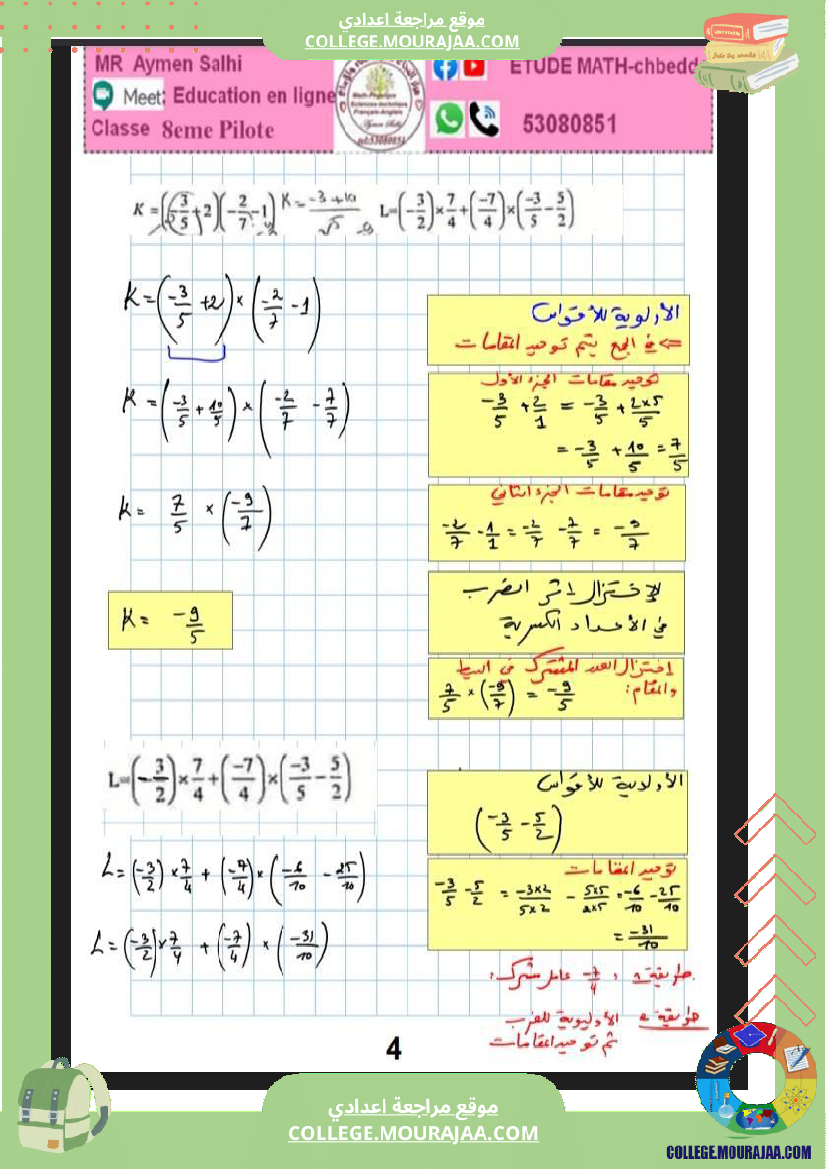 موقع مراجعة اعدادي
COLLEGE.MOURAJAA.COM
MR Aymen Salhi
Meet: Education en ligne
Classe 8eme Pilote
ETUDE MATH-chbedd
53080851
K=(-3/5+2)(-2/7-1) K=-3+10/5
L=(-3/2)×7/4+(-7/4)×(-3/5-5/2)
K=(-3/5+2)×(-2/7-1)
الأولوية للأقواس
⇐ في الجمع يتم توحيد المقامات
K=(-3/5+10/5)×(-2/7-7/7)
توحيد مقامات الجزء الأول
-3/5+2/1=-3/5+2×5/5
=-3/5+10/5=7/5
K=7/5×(-9/7)
توحيد مقامات الجزء الثاني
-2/7-1/1=-2/7-7/7=-9/7
K=-9/5
الضرب
في الأعداد الكسرية
إختزال العدد المشترك في البسط
والمقام:
7/5×(-9/7)=-9/5
L=(-3/2)×7/4+(-7/4)×(-3/5-5/2)
الأولوية للأقواس
(-3/5-5/2)
L=(-3/2)×7/4+(-7/4)×(-6/10-25/10)
توحيد المقامات
-3/5-5/2=-3×2/5×2-5×5/2×5=-6/10-25/10
=-31/10
L=(-3/2)×7/4+(-7/4)×(-31/10)
طريقة 1: -7/4 عامل مشترك:
طريقة 2 الأولوية للضرب
ثم توحيد المقامات
4
موقع مراجعة اعدادي
COLLEGE.MOURAJAA.COM
COLLEGE.MOURAJAA.COM